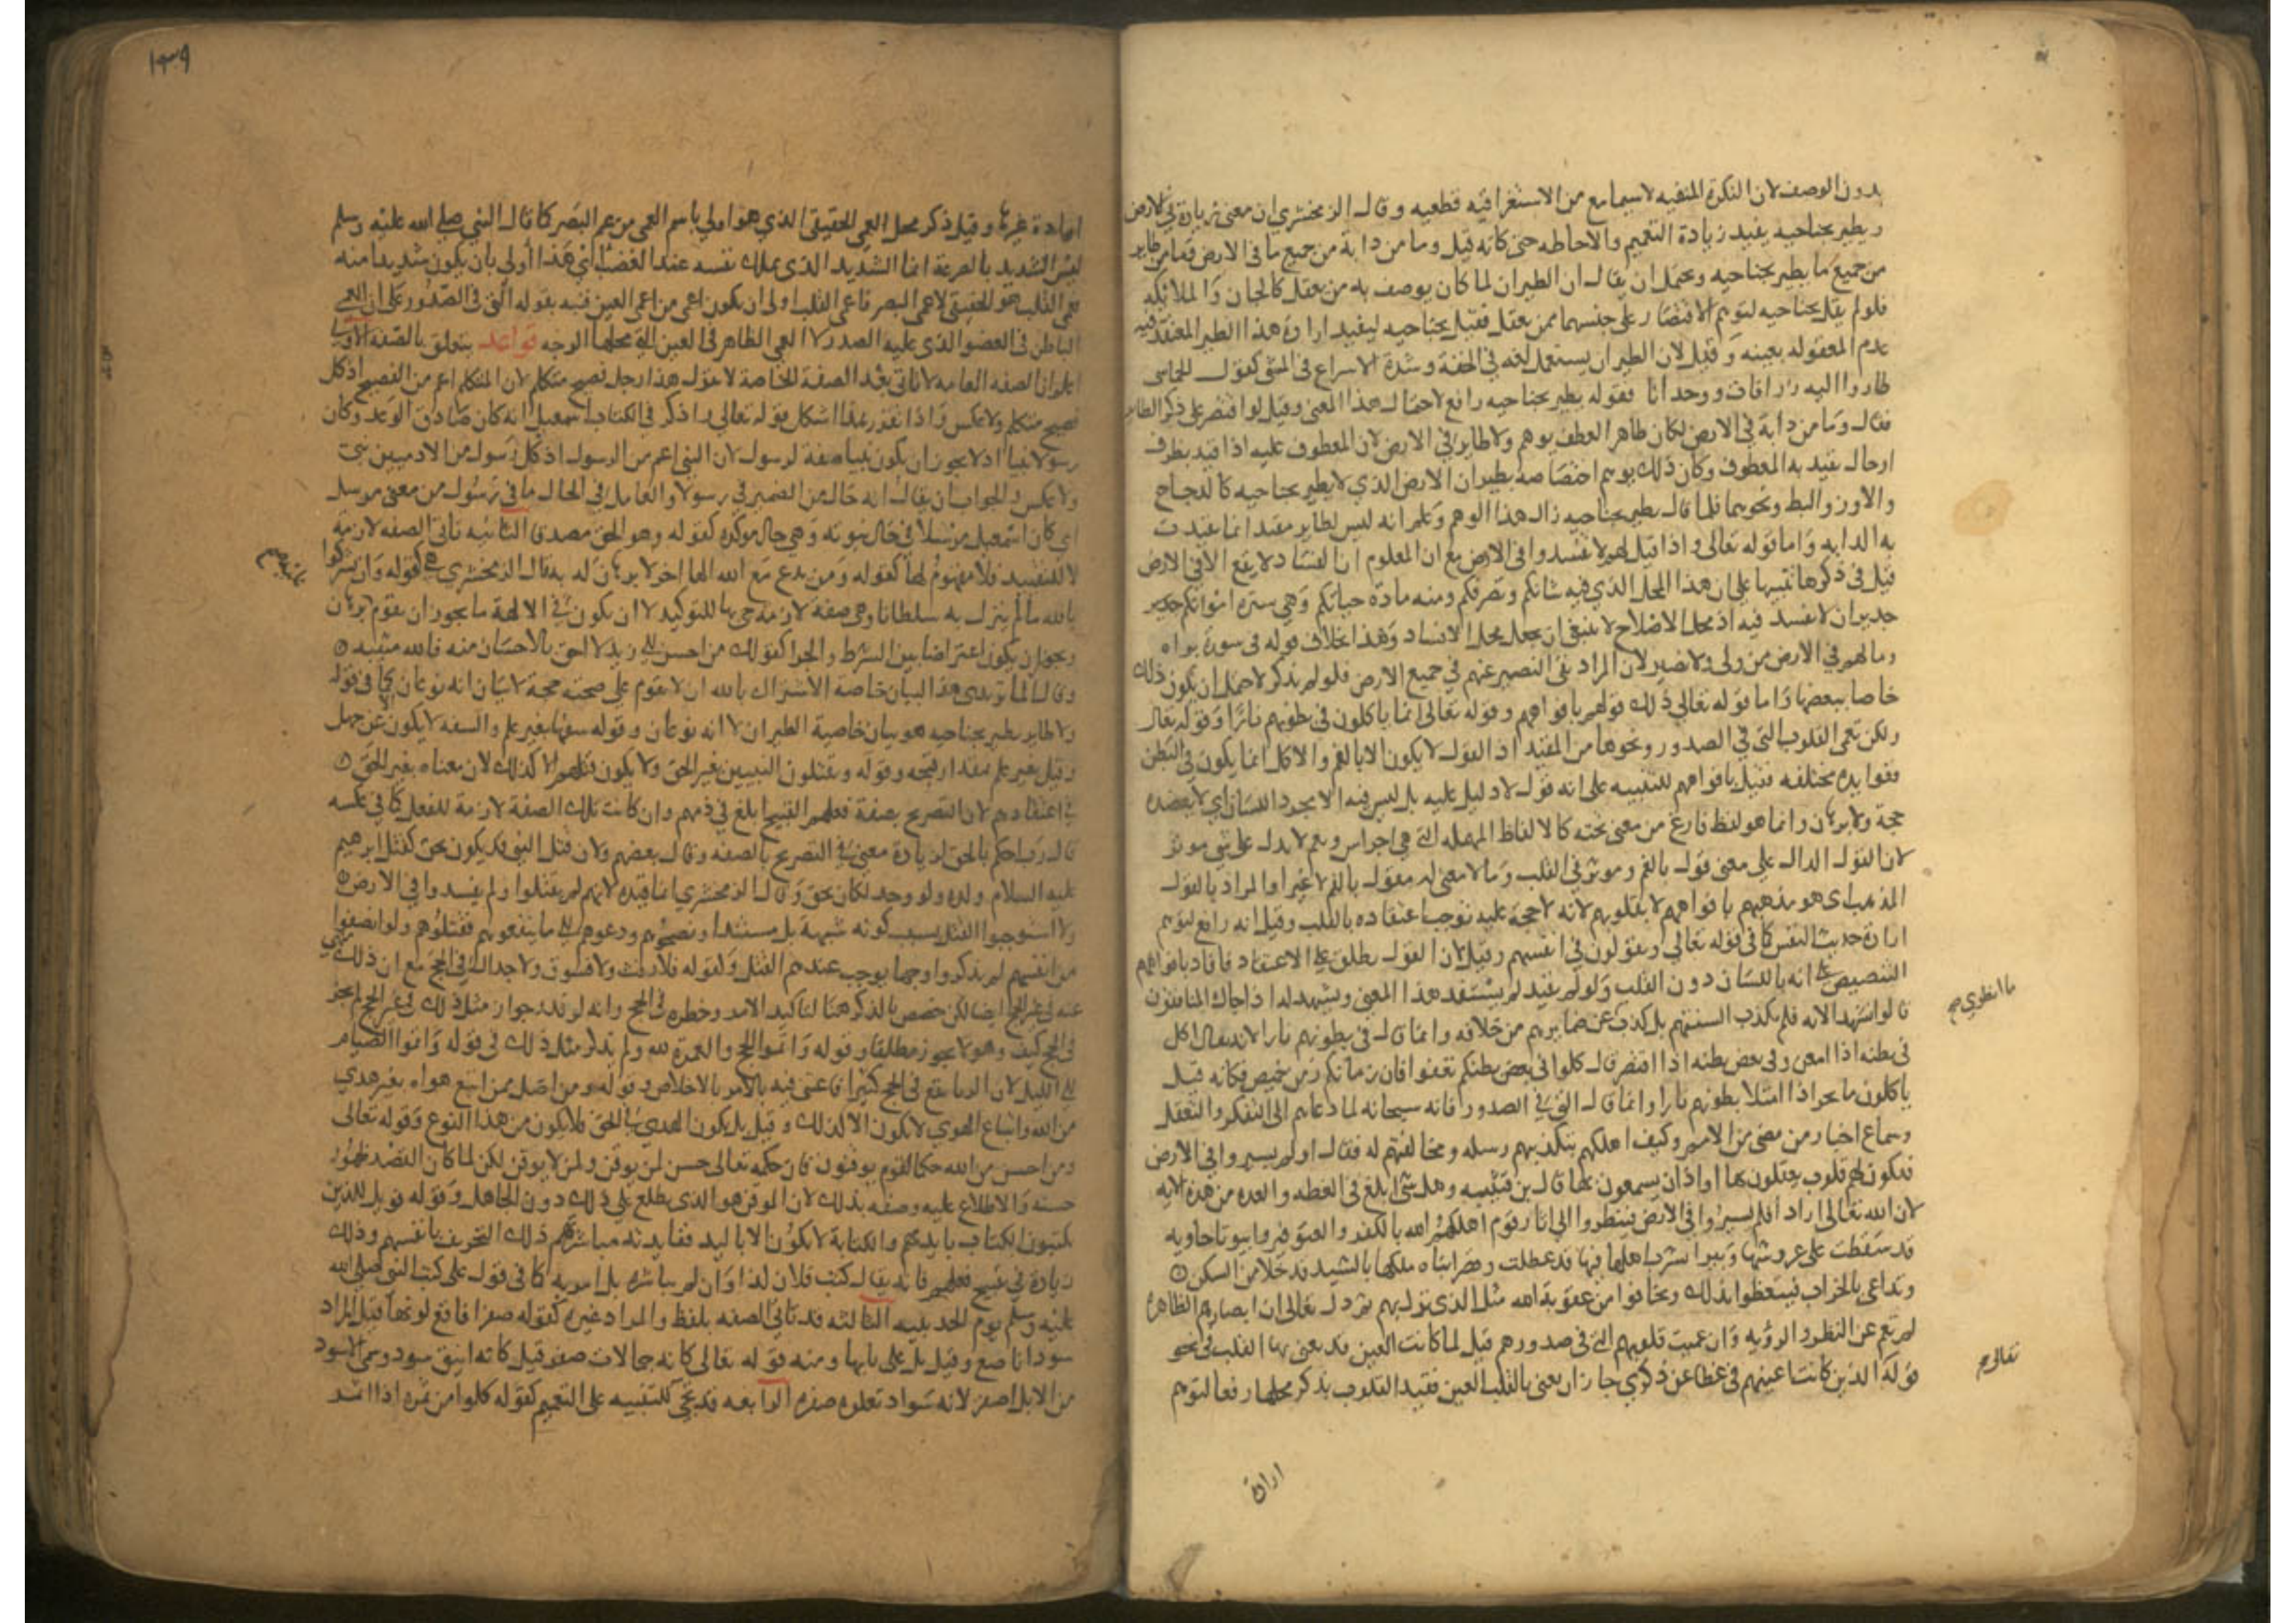 بدون الوصف لان النكرة المنفيه لا سيما مع من الاستغراقيه قطعيه وقال الزمخشري ان معنى زيادة في الارض
ويطير بجناحيه يفيد زيادة التعميم والاحاطه حتى كانه قيل وما من دابة من جميع ما في الارض وما من طاير
من جميع ما يطير بجناحيه ويحتمل ان يقال ان الطيران لما كان يوصف به من يعقل كالجان والملائكه
فلو لم يقل بجناحيه لتوهم الاقتصار على جنسهما ممن يعقل فقيل بجناحيه ليفيد ارادة هذا الطير المعتقد فيه
عدم المعقوله بعينه وقيل لان الطيران يستعمل لغه في الخفة وشدة الاسراع في المشي كقول الحماسي
طاروا اليه زرافات ووحدانا فقوله يطير بجناحيه رافع لاحتمال هذا المعنى وقيل لو اقتصر على ذكر الطاير
فقال وما من دابة في الارض لكان ظاهر العطف يوهم ولا طاير في الارض لان المعطوف عليه اذا قيد بظرف
او حال تقيد به المعطوف وكان ذلك يوهم اختصاصه بطيران الارض الذي لا يطير بجناحيه كالدجاج
والاوز والبط ونحوها فلما قال يطير بجناحيه زال هذا الوهم وعلم انه ليس لطاير مقيد انما تقيدت
به الدابه واما قوله تعالى واذا قيل لهم لا تفسدوا في الارض مع ان المعلوم ان الفساد لا يقع الا في الارض
قيل في ذكرها تنبيها على ان هذا المحل الذي فيه شانكم وتصرفكم ومنه مادة حياتكم وهي سترة امواتكم جدير
جدير ان لا تفسد فيه اذ محل الاصلاح لا ينبغي ان يجعل محل الافساد وهذا بخلاف قوله في سورة براه
وما لهم في الارض من ولي ولا نصير لان المراد نفي النصير عنهم في جميع الارض فلو لم يذكر لاحتمل ان يكون ذلك
خاصا ببعضها واما قوله تعالى ذلك قولهم بافواههم وقوله تعالى انما ياكلون في بطونهم نارا وقوله تعالى
ولكن تعمى القلوب التي في الصدور ونحوها من المقيد اذ القول لا يكون الا بالفم والاكل انما يكون في البطن
ففوايده مختلفه فقيل بافواههم للتنبيه على انه قول لا دليل عليه بل ليس فيه الا مجرد اللسان اي لا يعضده
حجة ولا برهان وانما هو لفظ فارغ من معنى تحته كالالفاظ المهمله التي هي اجراس ونغم لا يدل على شي موثر
لان القول الدال على معنى قول بالفم وموثر في القلب وما لا معنى له مقول بالفم لا غير او المراد بالقول
المذهب اي هو مذهبهم بافواههم لا بقلوبهم لانه لا حجة عليه توجب اعتقاده بالقلب وقيل انه رافع لتوهم
ارادة حديث النفس كما في قوله تعالى ويقولون في انفسهم وقيل لان القول يطلق على الاعتقاد فافاد بافواههم
التنصيص على انه باللسان دون القلب ولو لم يقيد لم يستفد هذا المعنى ويشهد له اذا جاك المنافقون
قالوا نشهد الايه فلم يكذب السنتهم بل كذب ضمايرهم من خلافه وانما قال في بطونهم نارا لانه يقال اكل
في بطنه اذا امعن وفي بعض بطنه اذا اقتصر قال كلوا في بعض بطنكم تعفوا فان زمانكم زمن خميص فكانه قيل
ياكلون ما يجر اذا امتلا بطونهم نارا وانما قال التي في الصدور فانه سبحانه لما دعاهم الى التفكر والتعقل
وسماع اخبار من مضى من الامم وكيف اهلكهم بتكذيبهم رسله ومخالفتهم له فقال اولم يسيروا في الارض
فتكون لهم قلوب يعقلون بها او اذان يسمعون بها قال بن قتيبه وهل شي ابلغ في العظه والعبره من هذه الايه
لان الله تعالى اراد افلم يسيروا في الارض فينظروا الى اثار قوم اهلكهم الله بالكفر والعتو فيروا بيوتا خاويه
قد سقطت على عروشها وبيرا يشرب اهلها فيها قد عطلت وقصرا بناه ملكها بالشيد قد خلا من السكن
وتداعى بالخراب فيتعظوا بذلك ويخافوا من عقوبة الله مثل الذي نزل بهم ثم ذكر تعالى ان ابصارهم الظاهرة
لم تعم عن النظر والرؤيه وان عميت قلوبهم التي في صدورهم قيل لما كانت العين قد يعنى بها القلب في نحو
قوله الذين كانت اعينهم في غطا عن ذكري جاز ان يعنى بالقلب العين فقيد القلوب بذكر محلها رفعا لتوهم
تعالى صح
ارادة
١٣٩
ارادة غيرها وقيل ذكر محل العمى الحقيقي الذي هو اولى باسم العمى من عمى البصر كما قال النبي صلى الله عليه وسلم
ليس الشديد بالصرعة انما الشديد الذي يملك نفسه عند الغضب اي هذا اولى بان يكون شديدا منه
فعمى القلب هو الحقيقي لا عمى البصر فاعمى القلب اولى ان يكون اعمى من اعمى العين فنبه بقوله التي في الصدور على ان العمى
الباطن في العضو الذي عليه الصدر لا العمى الظاهر في العين التي محلها الوجه قواعد يتعلق بالصفه الاولى
اعلم ان الصفه العامه لا تاتي بعد الصفة الخاصة لا تقول هذا رجل فصيح متكلم لان المتكلم اعم من الفصيح اذ كل
فصيح متكلم ولا عكس واذا تقرر هذا اشكل قوله تعالى واذكر في الكتاب اسمعيل انه كان صادق الوعد وكان
رسولا نبيا اذ لا يجوز ان يكون نبيا صفة لرسول لان النبي اعم من الرسول اذ كل رسول من الادميين نبي
ولا عكس والجواب ان يقال انه حال من الضمير في رسولا والعامل في الحال ما في رسول من معنى مرسل
اي كان اسمعيل مرسلا في حال نبوته وهي حال موكده كقوله وهو الحق مصدقا الثانيه تاتي الصفه لازمة
لا للتقييد فلا مفهوم لها كقوله ومن يدع مع الله الها اخر لا برهان له به قال الزمخشري هي كقوله وان تشركوا
بالله ما لم ينزل به سلطانا وهي صفة لازمة جي بها للتوكيد لا ان يكون في الالهة ما يجوز ان يقوم برهان
ويجوز ان يكون اعتراضا بين الشرط والجزا كقولك من احسن الى زيد لا احق بالاحسان منه فالله مثيبه
وقال الماتريدي هذا البيان خاصة الاشراك بالله ان لا تقوم على صحته حجة لا بيان انه نوعان كما في قوله
ولا طاير يطير بجناحيه هو بيان خاصية الطيران لا انه نوعان وقوله سفها بغير علم والسفه لا يكون الا عن جهل
وقيل بغير علم بمقدار قبحه وقوله ويقتلون النبيين بغير الحق ولا يكون قتلهم الا كذلك لان معناه بغير الحق
في اعتقادهم لان التصريح بصفة فعلهم القبيح ابلغ في ذمهم وان كانت تلك الصفة لازمة للفعل كما في عكسه
قال رب احكم بالحق لزيادة معنى في التصريح بالصفه وقال بعضهم ولان قتل النبي قد يكون بحق كقتل ابرهيم
عليه السلام ولده ولو وجد لكان بحق وقال الزمخشري انما قيده لانهم لم يقتلوا ولم يفسدوا في الارض
ولا استوجبوا القتل بسبب كونه شبهة بل مستندا ونصحوهم ودعوهم الى ما ينفعهم فقتلوهم ولو انصفوا
من انفسهم لم يذكروا وجها يوجب عندهم القتل ولقوله فلا رفث ولا فسوق ولا جدال في الحج مع ان ذلك منهي
عنه في غير الحج ايضا لكن خصص بالذكر هنا لتاكيد الامر وخطره في الحج وانه لو قدر جواز مثل ذلك في غير الحج لم يجز
في الحج كيف وهو لا يجوز مطلقا وقوله واتموا الحج والعمرة لله ولم يذكر مثل ذلك في قوله واتموا الصيام
الى الليل لان الريا يقع في الحج كثيرا فاعتنى فيه بالامر بالاخلاص وقوله ومن اضل ممن اتبع هواه بغير هدى
من الله واتباع الهوى لا يكون الا كذلك وقيل بل يكون الهدى في الحق فلا يكون من هذا النوع وقوله تعالى
ومن احسن من الله حكما لقوم يوقنون فان حكمه تعالى حسن لمن يوقن ولمن لا يوقن لكن لما كان القصد ظهور
حسنه والاطلاع عليه وصفه بذلك لان الموقن هو الذي يطلع على ذلك دون الجاهل وقوله فويل للذين
يكتبون الكتاب بايديهم والكتابة لا تكون الا باليد ففايدته مباشرتهم ذلك التحريف بانفسهم وذلك
زيادة في قبيح فعلهم فانه يقال كتب فلان كذا وان لم يباشره بل امر به كما في قول علي كتب النبي صلى الله
عليه وسلم يوم الحديبيه الثالثه قد تاتي الصفه بلفظ والمراد غيره كقوله صفرا فاقع لونها قيل المراد
سودا ناصع وقيل بل على بابها ومنه قوله تعالى كانه جمالات صفر قيل كانه اينق سود وسمي الاسود
من الابل اصفر لانه سواد تعلوه صفره الرابعه قد تجي للتنبيه على التعميم كقوله كلوا من ثمره اذا اثمر